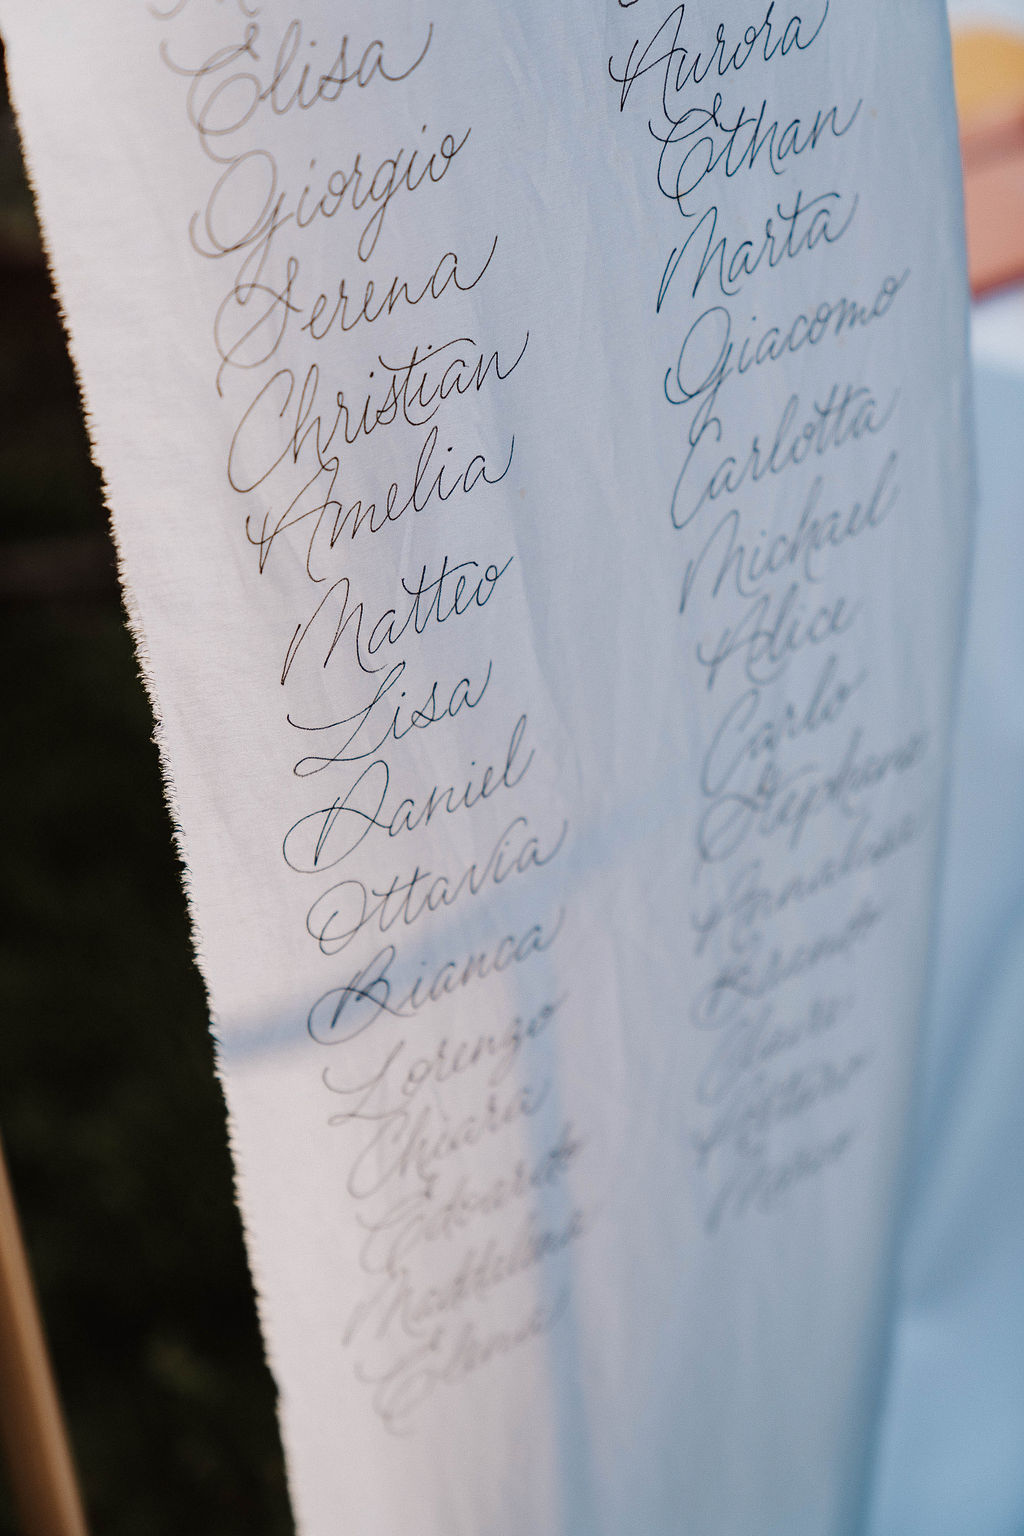 Elisa
Giorgio
Serena
Christian
Amelia
Matteo
Lisa
Daniel
Ottavia
Bianca
Lorenzo
Chiara
Edoardo
Maddalena
Elena
Aurora
Ethan
Marta
Giacomo
Carlotta
Michael
Alice
Carlo
Stephano
Annalisa
Marco